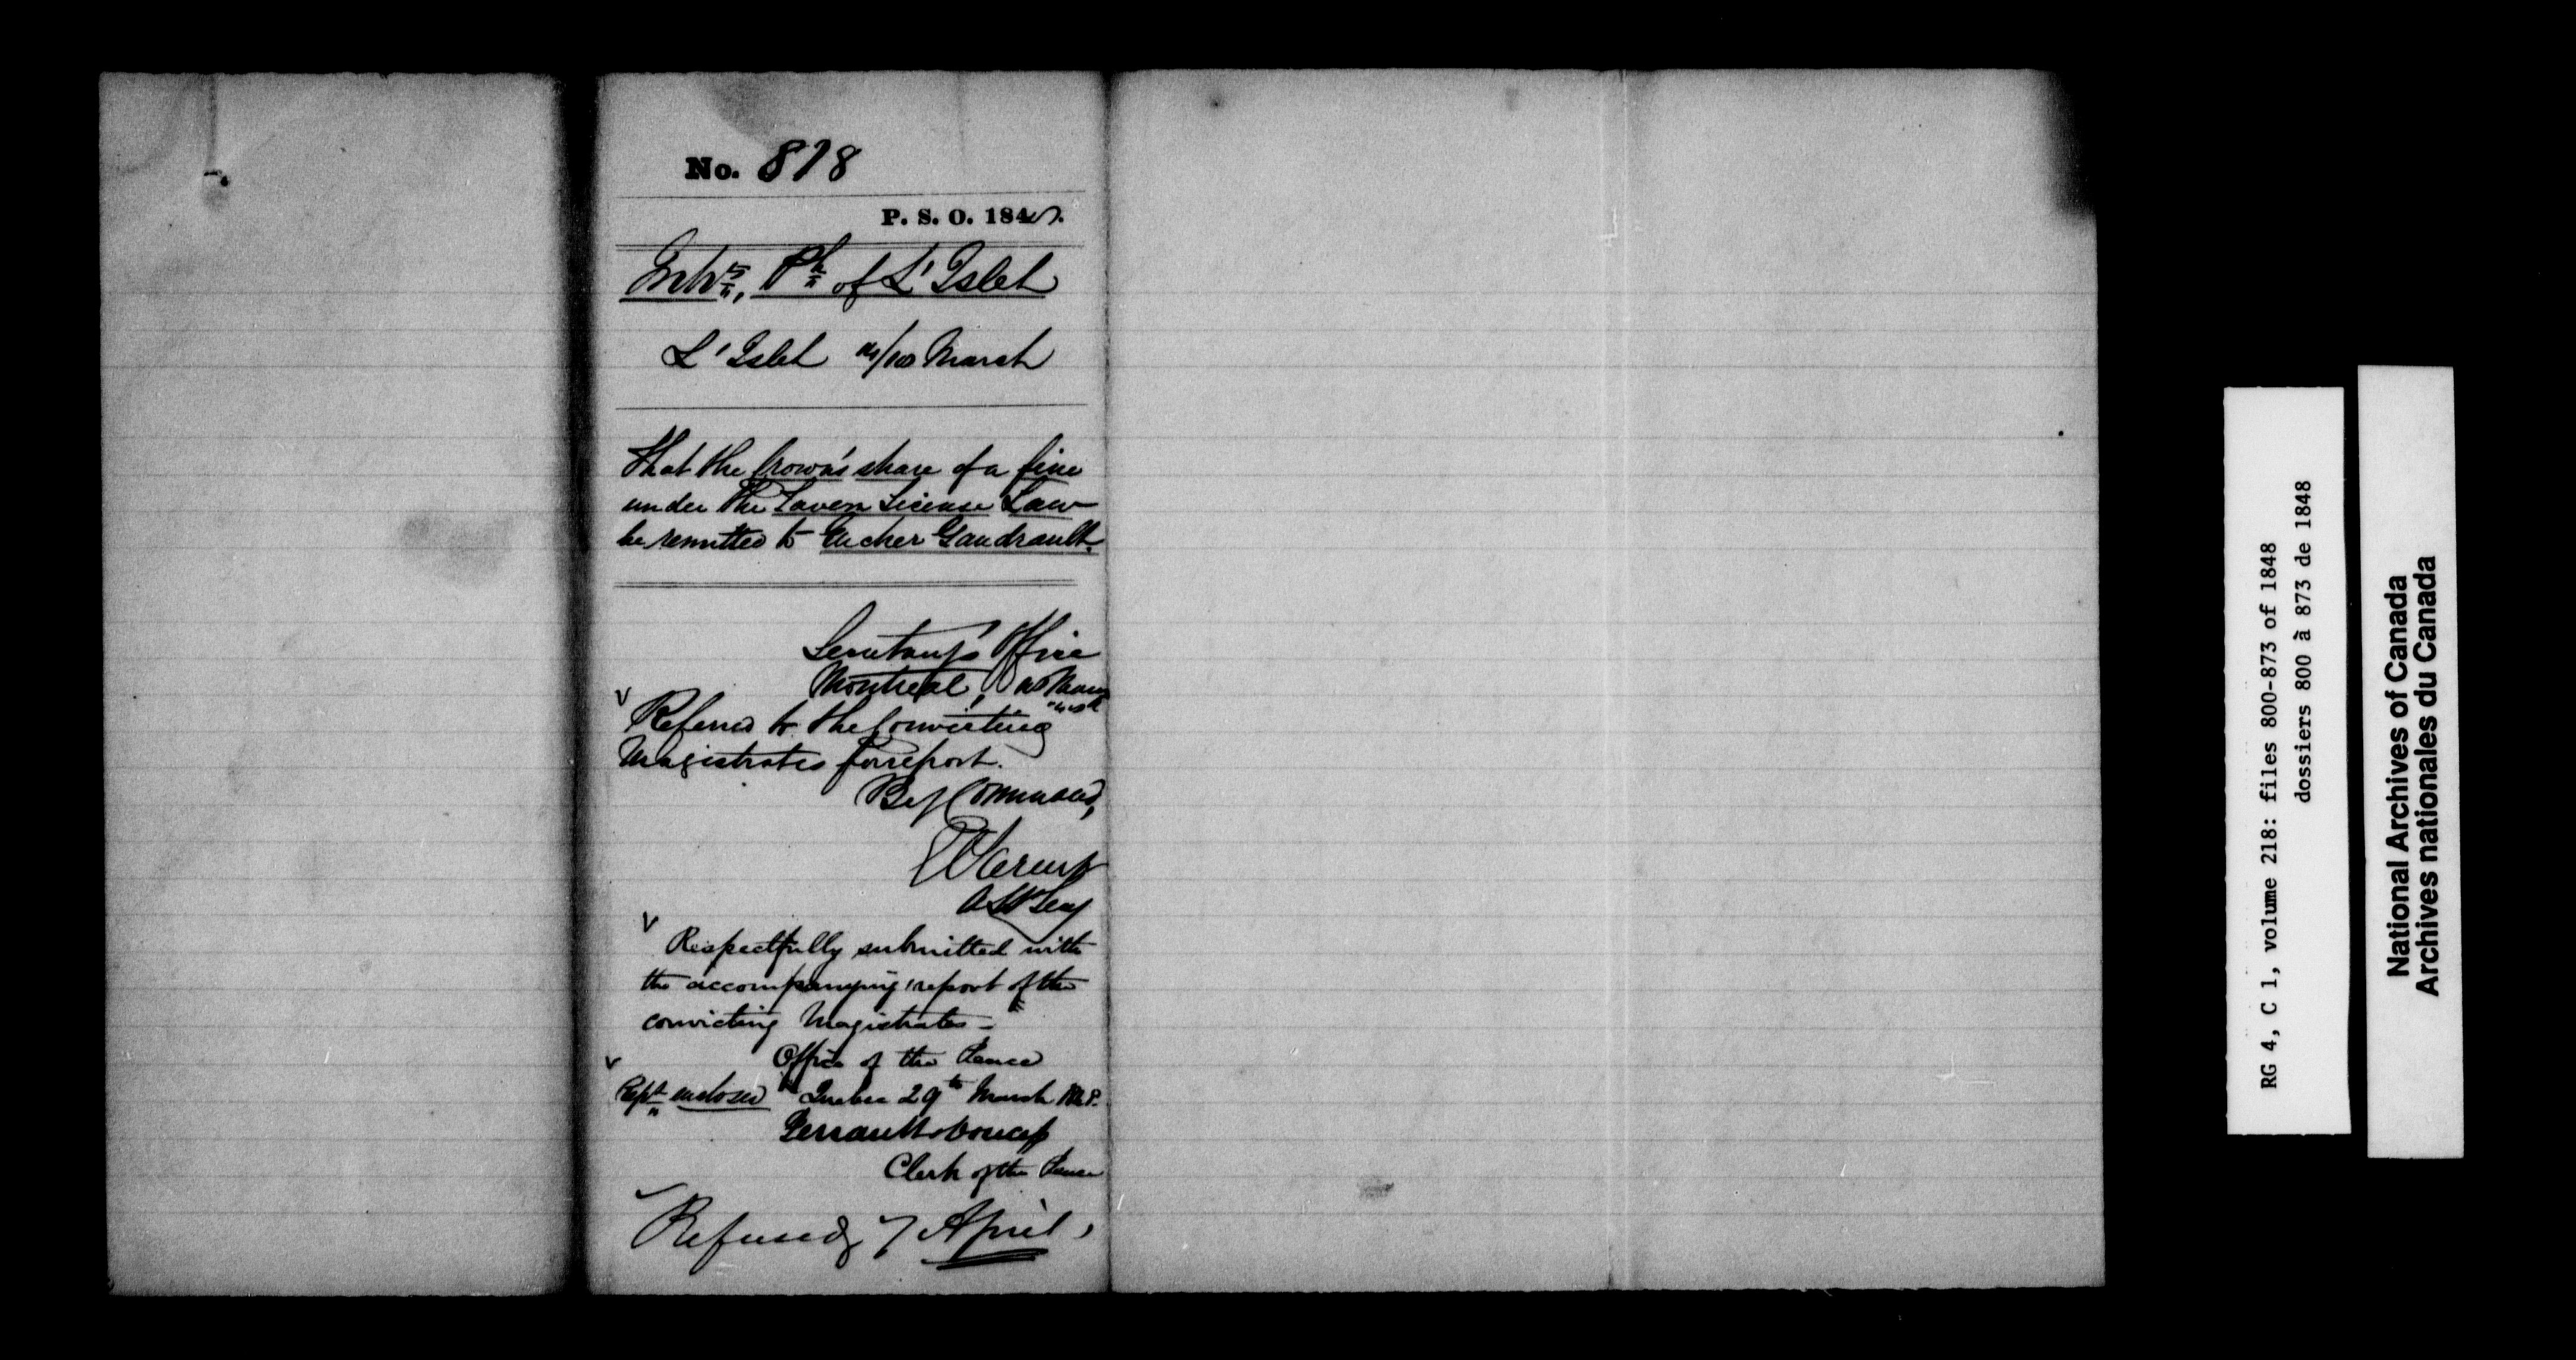 No. 818
P. S. O. 184
Inhts, Ph of L'Islet
L'Islet March
That the Crown's share of a fine
under the Tavern License Law
be remitted to Eucher Gaudrault.
Secretary's Office
Montreal,
Referred to the Convicting
Magistrates for report.
By Command,
E Parent
Asst Secy
Respectfully submitted with
the accompanying report of the
convicting Magistrates -
Office of the Peace
Rept enclosed Quebec 29th March
Perrault
Clerk of the Peace
Refused, 7 April.
RG 4, C 1, volume 218: files 800-873 of 1848
dossiers 800 à 873 de 1848
National Archives of Canada
Archives nationales du Canada